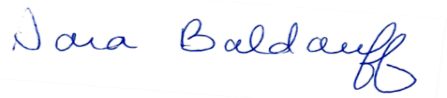 Sara Baldauff